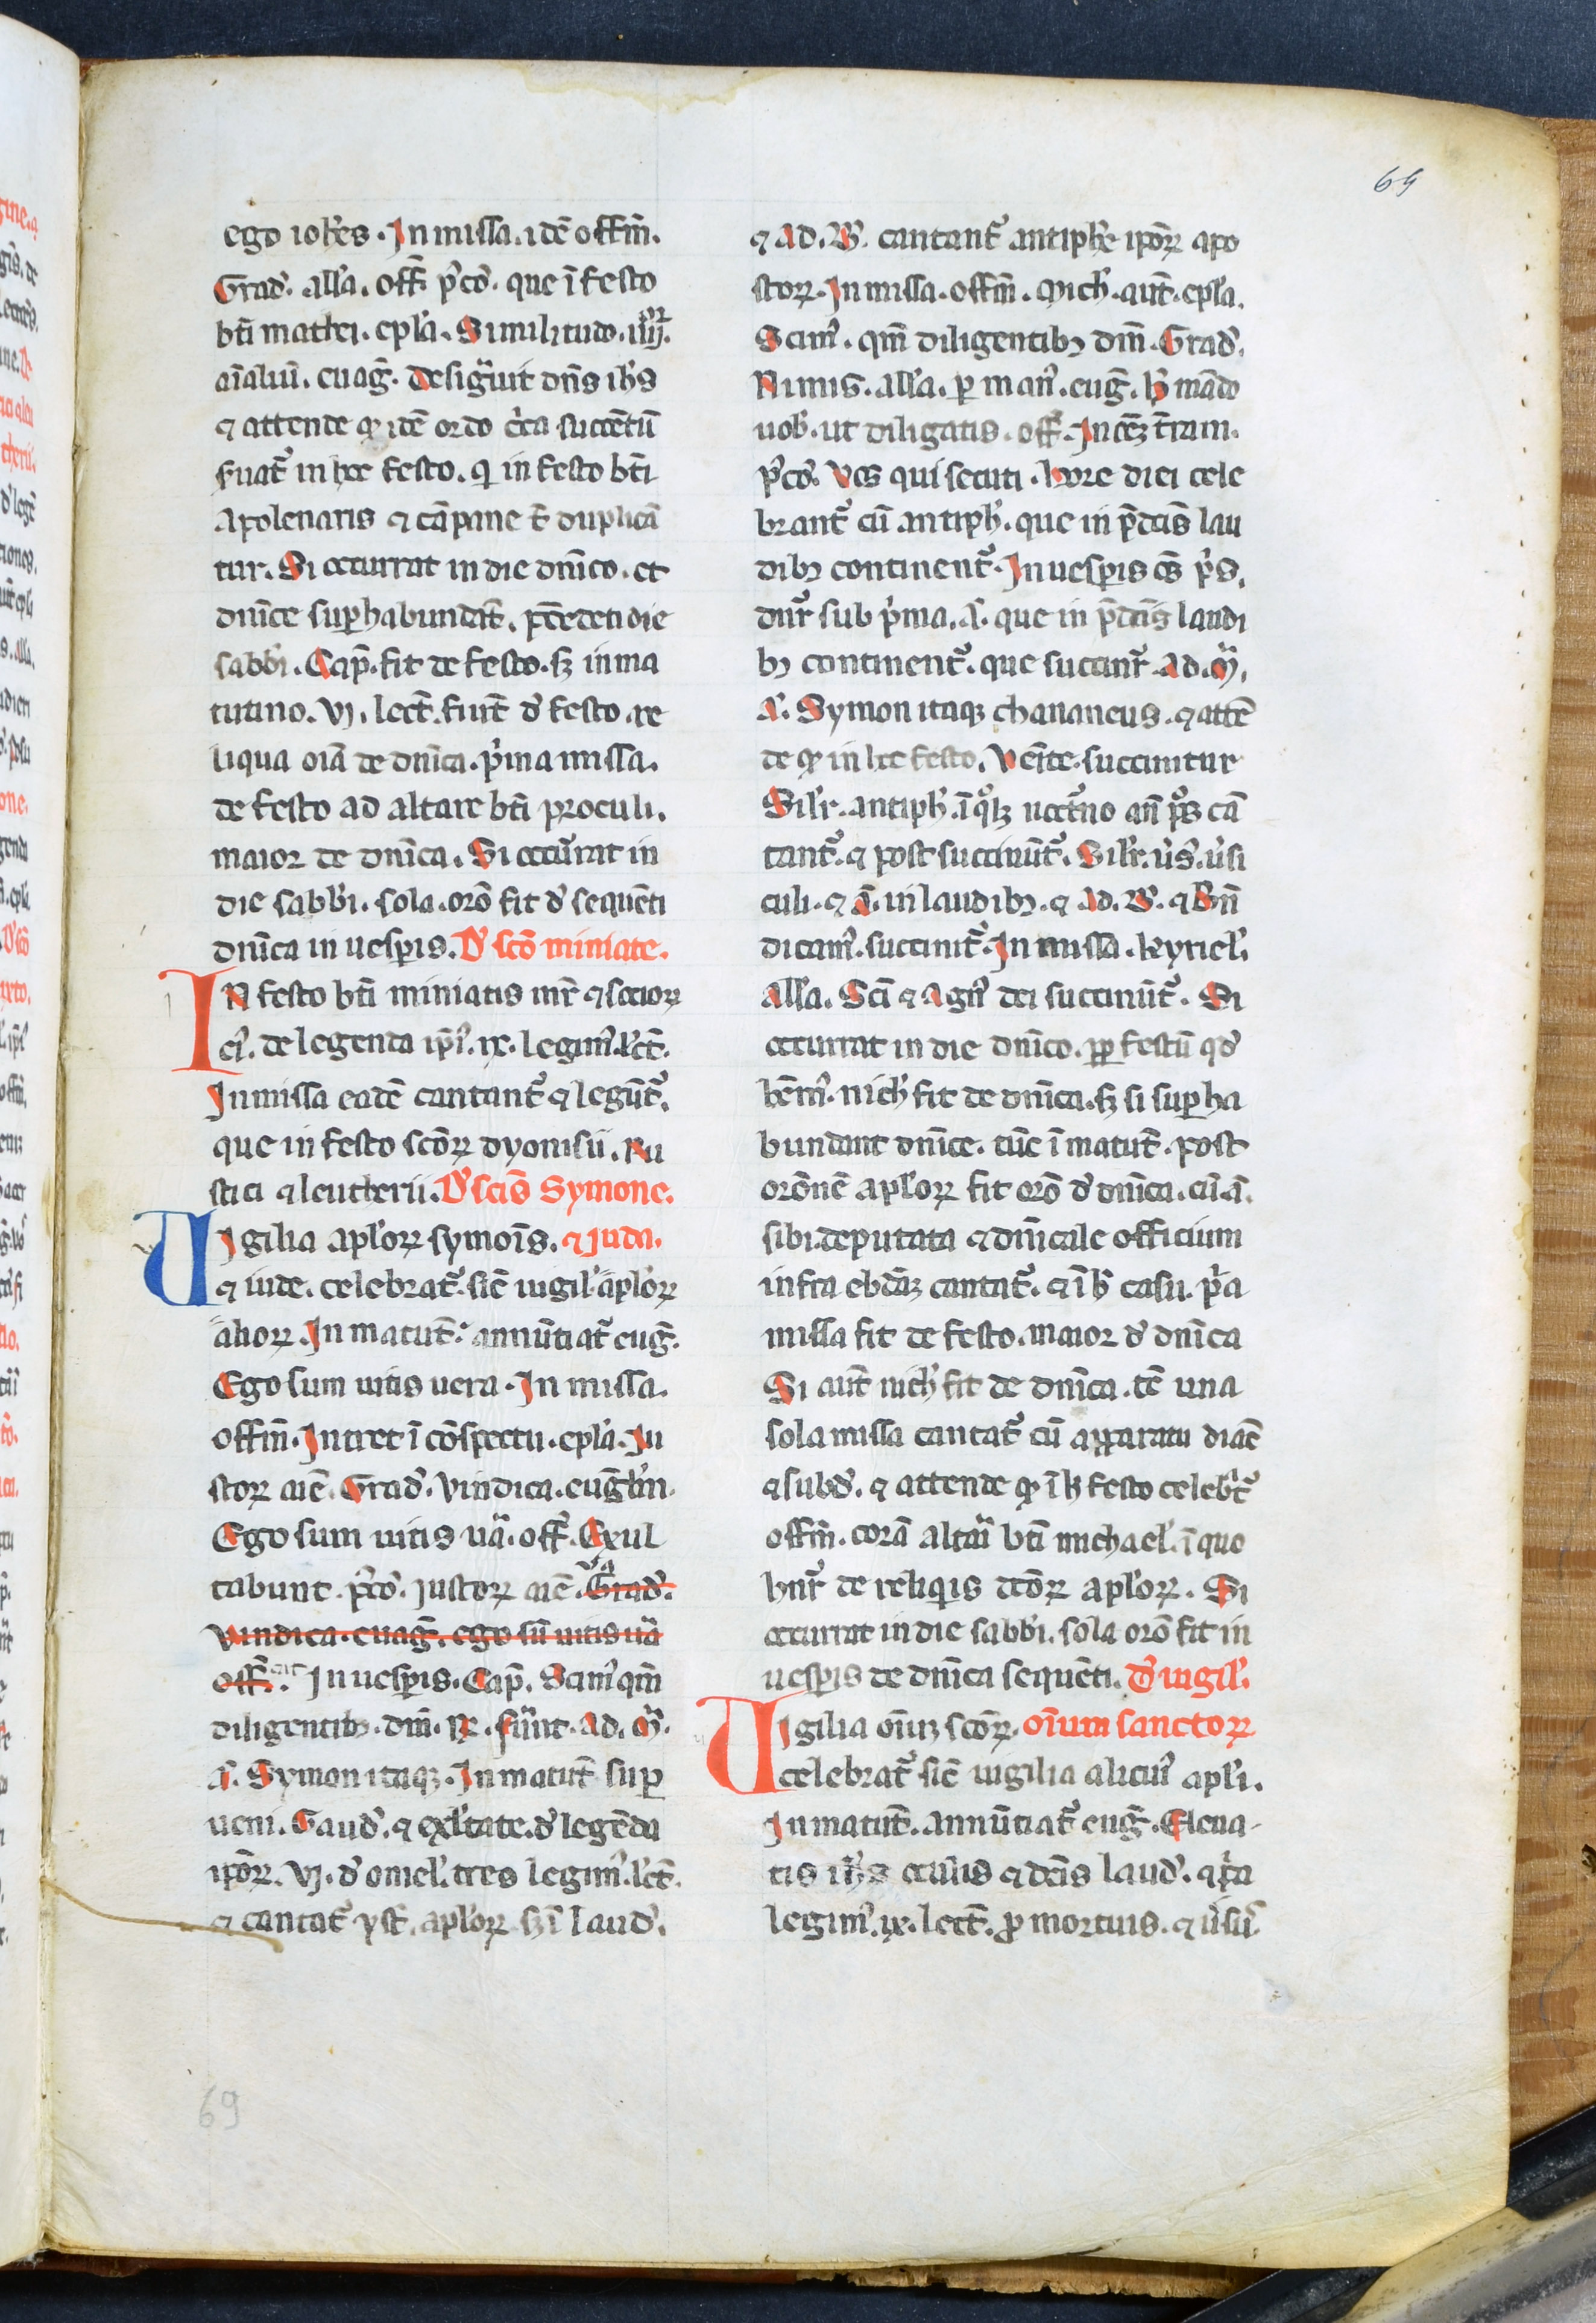 69
ego ioh̄es. In missa. idē offm̄.
Grad̉. all̓a. off̄. p̓cō. que ī festo
bt̄i mathei. ep̄la. Similitudo. iiij.
aīaliū. euaḡ. Desig̓uit dn̄s ih̄s
⁊ attende qꝫ idē ordo c̓ca succētū
suat̓ in hoc festo. qꝫ in festo bt̄i
Apolenaris ⁊ cāpane t̄ duplicā
tur. Si occurrat in die dn̄ico. et
dn̄ice suꝑhabundāt. p̄cedēti die
sabb̓i. Cap̄. fit de festo. sꝫ in ma
tutino. vj. lect̄. fiunt d̓ festo. re
liqua oīa de dn̄ica. p̓ma missa.
de festo ad altare bt̄i proculi.
maior de dn̄ica. Si occurrat in
die sabb̓i. sola. orō fit d̓ sequēti
dn̄ica in uesꝑis. D̓ scō miniate.
IN festo bt̄i miniatis mr̄ ⁊ socioꝝ
ei᷒. de legenda ip̄i᷒. ix. legim᷒. lc̄t.
In missa eadē cantant̓ ⁊ legūt̓.
que in festo sc̄oꝝ dyonisii. Ru
stici ⁊ leutherii. D̓ scīs Symone.
VIgilia ap̄loꝝ symoīs. ⁊ Juda.
⁊ iude. celebrat̓. sic̄ uigil̓ ap̄loꝝ
alioꝝ. In matut̄. annūtiat̓ euḡ.
Ego sum uitis uera. In missa.
offm̄. Intret ī cōspectu. ep̄la. Iu
stoꝝ aīe. Grad̓. Vindica. euḡlm̄.
Ego sum uitis u̓a. off̄. Exul
tabunt. p̓cō. iustoꝝ aīe. Grad̓.
Vindica. euaḡ. ego sū uitis u̓a
off̄. In uesꝑis. Cap̄. Scim᷒ qm̄
diligentibꝫ. dm̄. ℟. su̓it. Ad. m̓.
a̓. Symon itaqꝫ. In matut̄ suꝑ
ueni. Gaud̓. ⁊ exl̓tate. d̓ legēda
ip̄oꝝ. vj. d̓ omel̓. tres legim᷒. lc̄t.
⁊ cantat̓ yst̄. ap̄loꝝ sꝫ ī laud̓.
⁊ ad. B̓. cantant̓ antiph̄e ip̄oꝝ apo
stoꝝ. In missa. offm̄. Mich̓. aut̄. ep̄la.
Scim᷒. qm̄ diligentibꝫ dm̄. Grad̓.
Nimis. all̓a. ꝑ man᷒. euḡ. h̓ mādo
uob̓. ut diligatis. off̄. In oēꝫ t̄ram.
p̓cō. Vos qui secuti. hore diei cele
brant̓ cū antiph̓. que in p̄dc̄is lau
dibꝫ continent̓. In uesꝑis oēs p̓s.
dn̄r sub p̓ma. a̓. que in p̄dc̄is laudi
bꝫ continent̓. que succinr̄ Ad. m̓.
a̓. Symon itaqꝫ chananeus. ⁊ attē
de qꝫ in hoc festo. Venite. succinitur
Sil̓r. antiph̓. ī qͦlꝫ noct̓no añ p̓os cā
tant̓. ⁊ post succinūt̓. Sil̓r. u̓s. u̓si
culi. ⁊ a̓. in laudibꝫ. ⁊ Ad. B̓. ⁊ Bn̄
dicam᷒. succinit̓. In missa. kyriel̓.
all̓a. Sc̄s ⁊ Agn᷒ dei succinūt̓. Si
occurrat in die dn̄ico. ꝓp festū qd̓
hēm᷒. nich̓ fit de dn̄ica. sꝫ si suꝑha
bundant dn̄ice. tūc ī matut̄. post
orōnē ap̄loꝝ fit orō d̓ dn̄ica. cū a̓.
sibi deputata ⁊ dn̄icale officium
infra ebd̄aꝫ cantat̓. ⁊ ī h̓ casu. p̓a
missa fit de festo. maior d̓ dn̄ica
Si aut̄ nich̓ fit de dn̄ica. tc̄ una
sola missa cantat̓ cū apparatu diacē
⁊ subd̓. ⁊ attende qꝫ ī h̓ festo celebr̓t̓
offm̄. corā altari bt̄i michael̓. ī quo
hn̄r de reliquiis dc̄oꝝ ap̄loꝝ. Si
occurrat in die sabb̓i. sola orō fit in
uesꝑis de dn̄ica sequēti. D̓ uigil̓.
VIgilia oīuꝫ sc̄oꝝ. oīum sanctoꝝ
celebrat̓ sic̄ uigilia alicui᷒ ap̄li.
In matut̄. annūtiat̓ euḡ. Eleua-
tis ih̄s oculis ⁊ dc̄is laud̓. ⁊ p̓a
legim᷒. ix. lect̄. ꝓ mortuis. ⁊ u̓su᷒
69